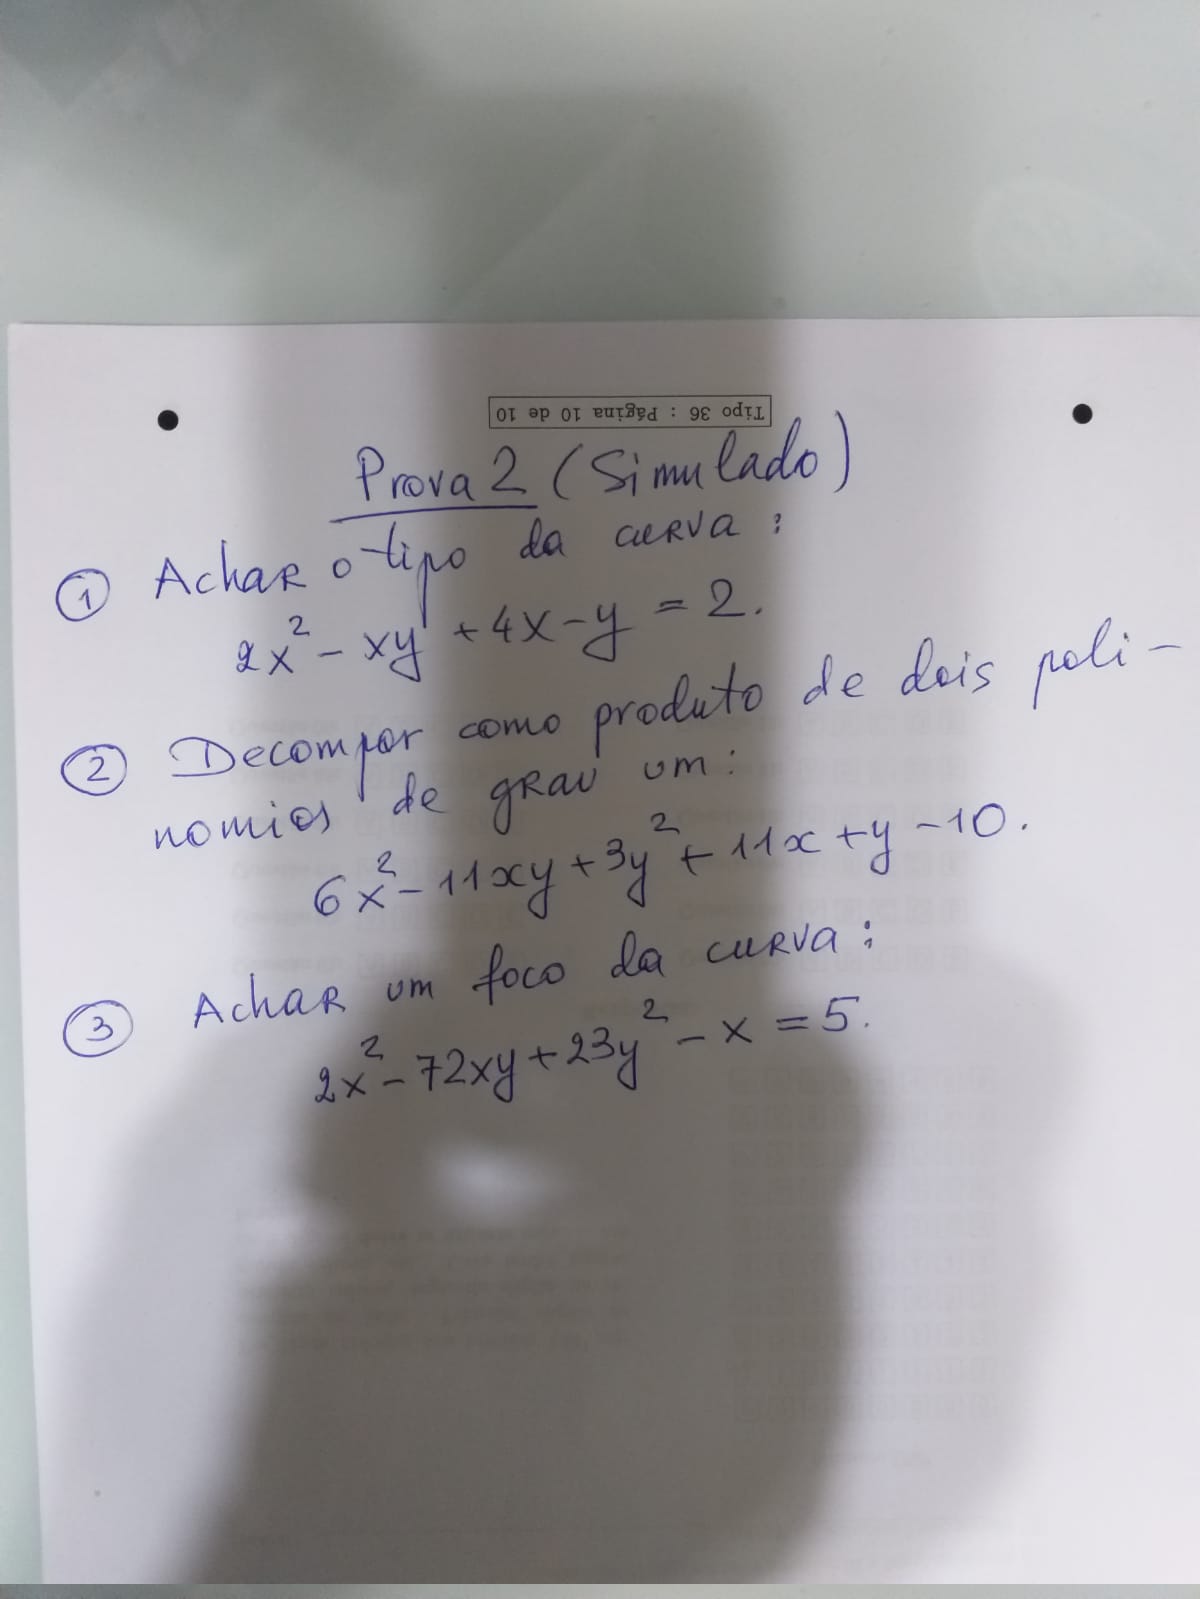 Tipo 36 : Página 10 de 10
Prova 2 (Simulado)
① Achar o tipo da curva:
2x² - xy + 4x - y = 2.
② Decompor como produto de dois poli-
nomios de grau um:
6x² - 11xy + 3y² + 11x + y - 10.
③ Achar um foco da curva:
2x² - 72xy + 23y² - x = 5.